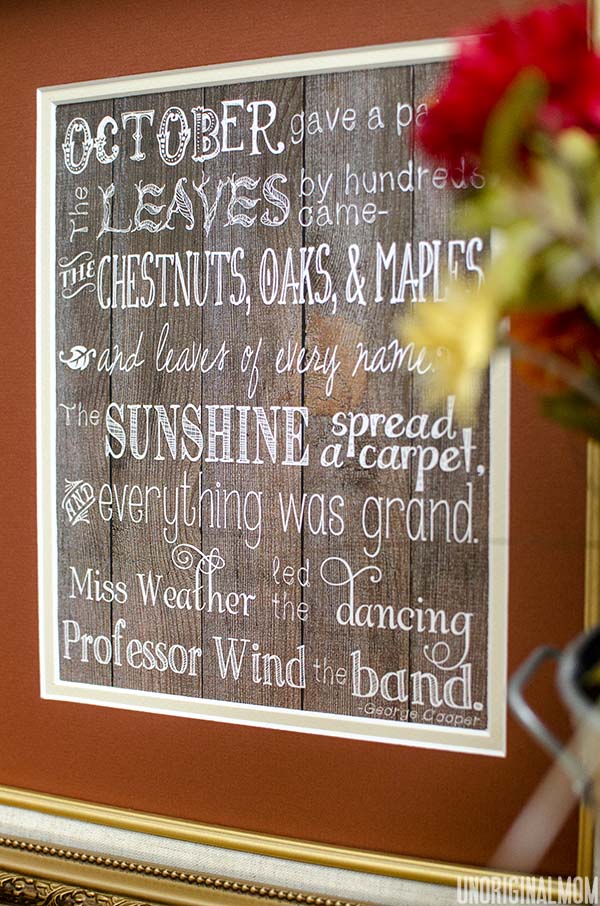 OCTOBER gave a
The LEAVES by hundreds came-
THE CHESTNUTS, OAKS, & MAPLES
and leaves of every name.
The SUNSHINE spread a carpet,
AND everything was grand.
Miss Weather led the dancing
Professor Wind the band.
-George Cooper
UNORIGINALMOM